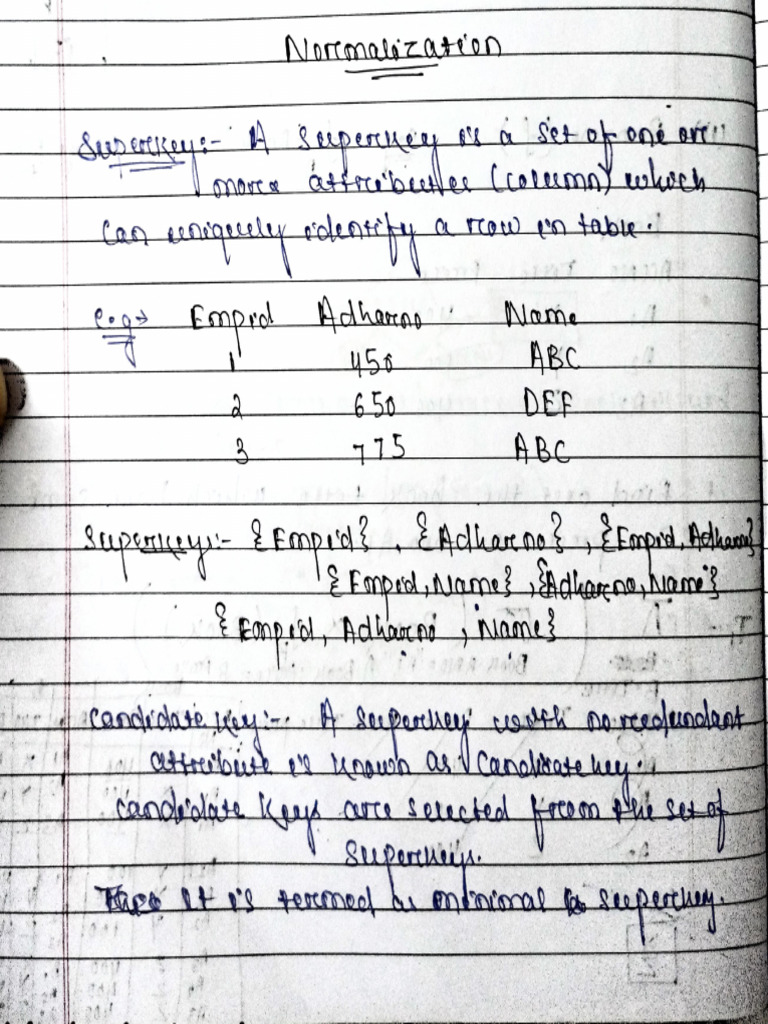 Normalization
Superkey:- A superkey is a set of one or
more attributes (column) which
can uniquely identify a row in table.
e.g→ Empid Adharno Name
1 450 ABC
2 650 DEF
3 775 ABC
Superkey:- {Empid}, {Adharno}, {Empid, Adharno}
{Empid, Name}, {Adharno, Name}
{Empid, Adharno, Name}
Candidate key:- A superkey with no redundant
attribute is known as Candidate key.
Candidate keys are selected from the set of
superkeys.
It is termed as minimal superkey.